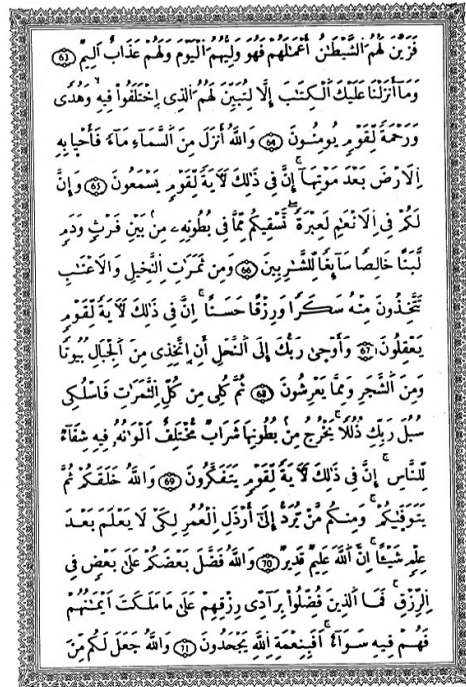 فَزَيَّنَ لَهُمُ الشَّيْطَٰنُ أَعْمَٰلَهُمْ فَهُوَ وَلِيُّهُمُ الْيَوْمَ وَلَهُمْ عَذَابٌ اَلِيمٌ 63
وَمَا أَنزَلْنَا عَلَيْكَ الْكِتَٰبَ إِلَّا لِتُبَيِّنَ لَهُمُ الذِى اِخْتَلَفُواْ فِيهِ وَهُدًى
وَرَحْمَةً لِّقَوْمٍ يُومِنُونَ 64 وَاللَّهُ أَنزَلَ مِنَ السَّمَآءِ مَآءً فَأَحْيَا بِهِ
اِلَارْضَ بَعْدَ مَوْتِهَآ إِنَّ فِى ذَٰلِكَ لَأٓيَةً لِّقَوْمٍ يَسْمَعُونَ 65 وَإِنَّ
لَكُمْ فِى اِلَانْعَٰمِ لَعِبْرَةً نَّسْقِيكُم مِّمَّا فِى بُطُونِهِۦ مِنۢ بَيْنِ فَرْثٍ وَدَمٍ
لَّبَنًا خَالِصًا سَآئِغًا لِّلشَّٰرِبِينَ 66 وَمِن ثَمَرَٰتِ النَّخِيلِ وَالَاعْنَٰبِ
تَتَّخِذُونَ مِنْهُ سَكَرًا وَرِزْقًا حَسَنًا اِنَّ فِى ذَٰلِكَ لَأٓيَةً لِّقَوْمٍ
يَعْقِلُونَ 67 وَأَوْحَىٰ رَبُّكَ إِلَى النَّحْلِ أَنِ اِتَّخِذِى مِنَ الْجِبَالِ بُيُوتًا
وَمِنَ الشَّجَرِ وَمِمَّا يَعْرِشُونَ 68 ثُمَّ كُلِى مِن كُلِّ الثَّمَرَٰتِ فَاسْلُكِى
سُبُلَ رَبِّكِ ذُلُلًا يَخْرُجُ مِنۢ بُطُونِهَا شَرَابٌ مُّخْتَلِفٌ اَلْوَٰنُهُۥ فِيهِ شِفَآءٌ
لِّلنَّاسِ إِنَّ فِى ذَٰلِكَ لَأٓيَةً لِّقَوْمٍ يَتَفَكَّرُونَ 69 وَاللَّهُ خَلَقَكُمْ ثُمَّ
يَتَوَفَّيٰكُمْ وَمِنكُم مَّنْ يُّرَدُّ إِلَىٰٓ أَرْذَلِ الْعُمُرِ لِكَىْ لَا يَعْلَمَ بَعْدَ
عِلْمٍ شَيْـًٔا اِنَّ اللَّهَ عَلِيمٌ قَدِيرٌ 70 وَاللَّهُ فَضَّلَ بَعْضَكُمْ عَلَىٰ بَعْضٍ فِى
اِلرِّزْقِ فَمَا الذِينَ فُضِّلُواْ بِرَآدِّى رِزْقِهِمْ عَلَىٰ مَا مَلَكَتَ اَيْمَٰنُهُمْ
فَهُمْ فِيهِ سَوَآءٌ اَفَبِنِعْمَةِ اللَّهِ يَجْحَدُونَ 71 وَاللَّهُ جَعَلَ لَكُم مِّنَ